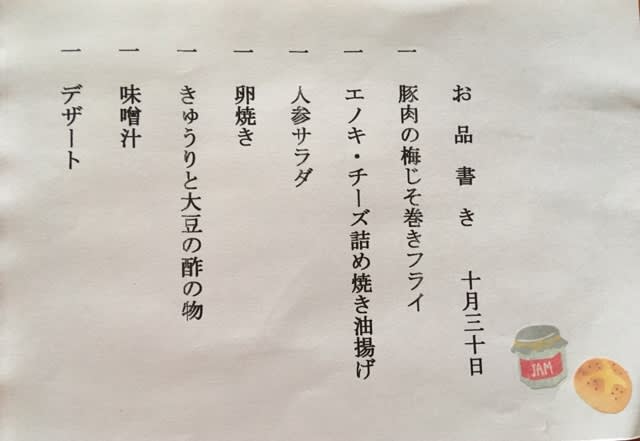 お品書き　十月三十日
一　豚肉の梅じそ巻きフライ
一　エノキ・チーズ詰め焼き油揚げ
一　人参サラダ
一　卵焼き
一　きゅうりと大豆の酢の物
一　味噌汁
一　デザート
JAM